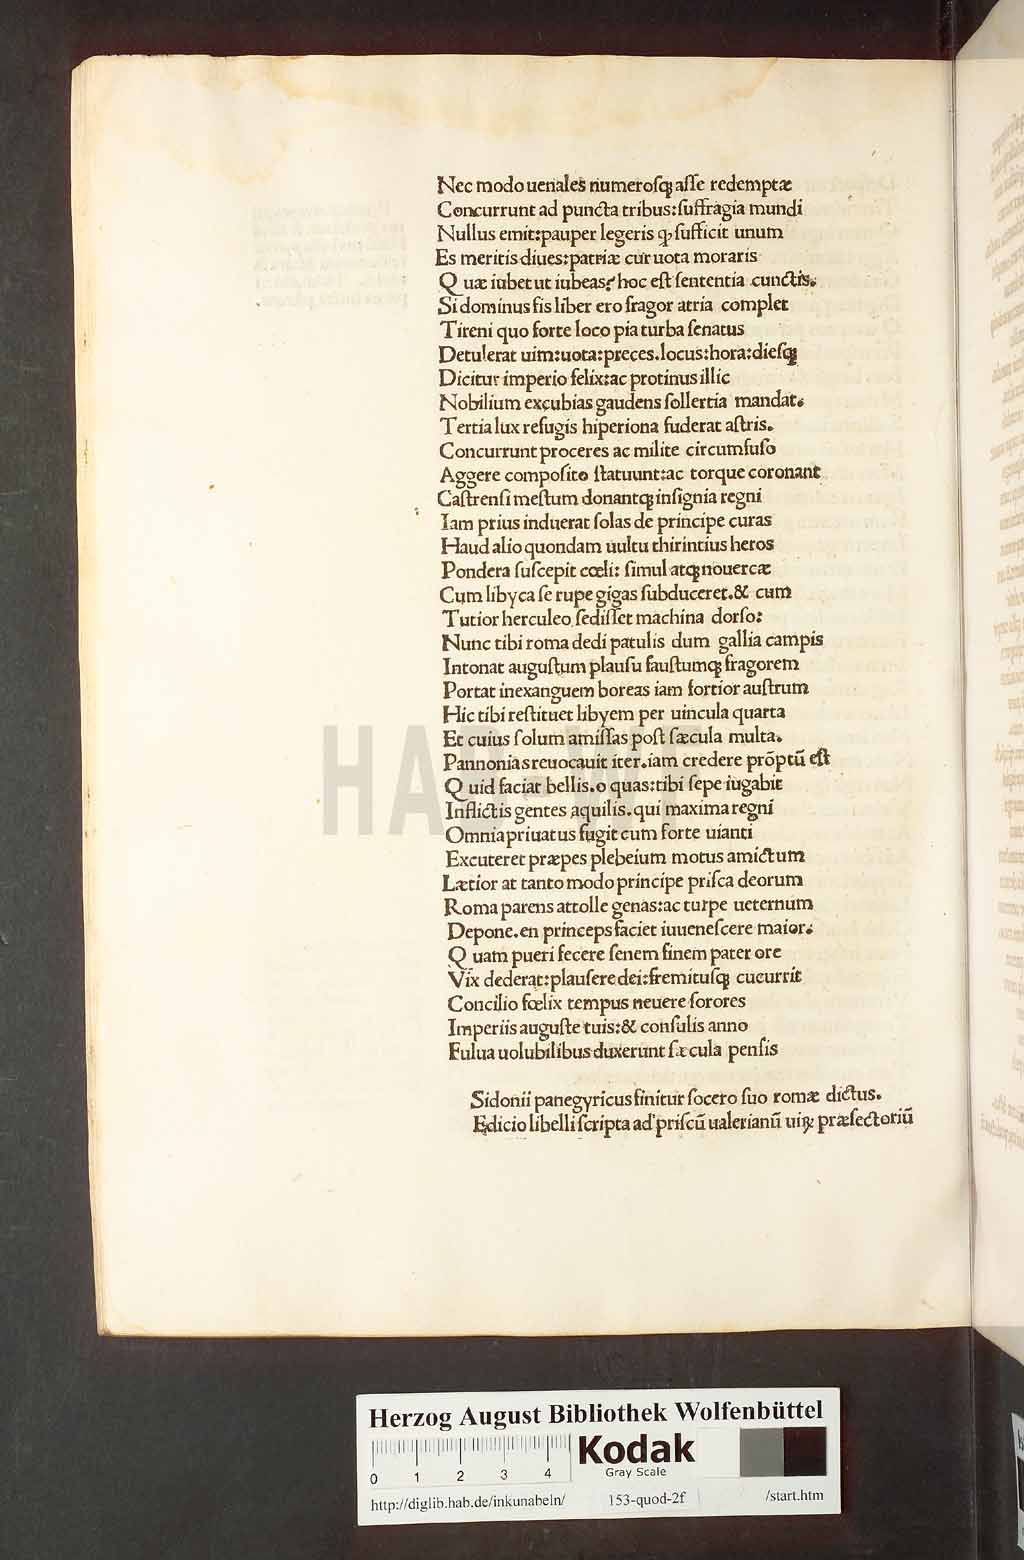 Nec modo uenales numeroſqꝫ aſſe redemptæ
Concurrunt ad puncta tribus:ſuffragia mundi
Nullus emit:pauper legeris ꝙ ſufficit unum
Es meritis diues:patriæ cur uota moraris
Quæ iubet ut iubeas? hoc eſt ſententia cunctis.
Si dominus fis liber ero fragor atria complet
Tireni quo forte loco pia turba ſenatus
Detulerat uim:uota:preces.locus:hora:dieſqꝫ
Dicitur imperio felix:ac protinus illic
Nobilium excubias gaudens ſollertia mandat.
Tertia lux refugis hiperiona fuderat aſtris.
Concurrunt proceres ac milite circumfuſo
Aggere compoſito ſtatuunt:ac torque coronant
Caſtrenſi meſtum donantqꝫ inſignia regni
Iam prius induerat ſolas de principe curas
Haud alio quondam uultu thirintius heros
Pondera ſuſcepit cœli: ſimul atqꝫ nouercæ
Cum libyca ſe rupe gigas ſubduceret.& cum
Tutior herculeo ſediſſet machina dorſo:
Nunc tibi roma dedi patulis dum gallia campis
Intonat auguſtum plauſu fauſtumqꝫ fragorem
Portat inexanguem boreas iam fortior auſtrum
Hic tibi reſtituet libyem per uincula quarta
Et cuius ſolum amiſſas poſt ſæcula multa.
Pannonias reuocauit iter.iam credere prõptũ eſt
Quid faciat bellis.o quas:tibi ſepe iugabit
Inflictis gentes aquilis.qui maxima regni
Omnia priuatus fugit cum forte uianti
Excuteret præpes plebeium motus amictum
Lætior at tanto modo principe priſca deorum
Roma parens attolle genas:ac turpe ueternum
Depone.en princeps faciet iuueneſcere maior.
Quam pueri fecere ſenem finem pater ore
Vix dederat:plauſere dei:fremituſqꝫ cucurrit
Concilio fœlix tempus neuere ſorores
Imperiis auguſte tuis:& conſulis anno
Fulua uolubilibus duxerunt ſæcula penſis
Sidonii panegyricus finitur ſocero ſuo romæ dictus.
Edicio libelli ſcripta ad priſcũ ualerianũ uiꝝ præfectoriũ
HAB-WF
Herzog August Bibliothek Wolfenbüttel
0 1 2 3 4
Kodak
Gray Scale
http://diglib.hab.de/inkunabeln/ 153-quod-2f /start.htm